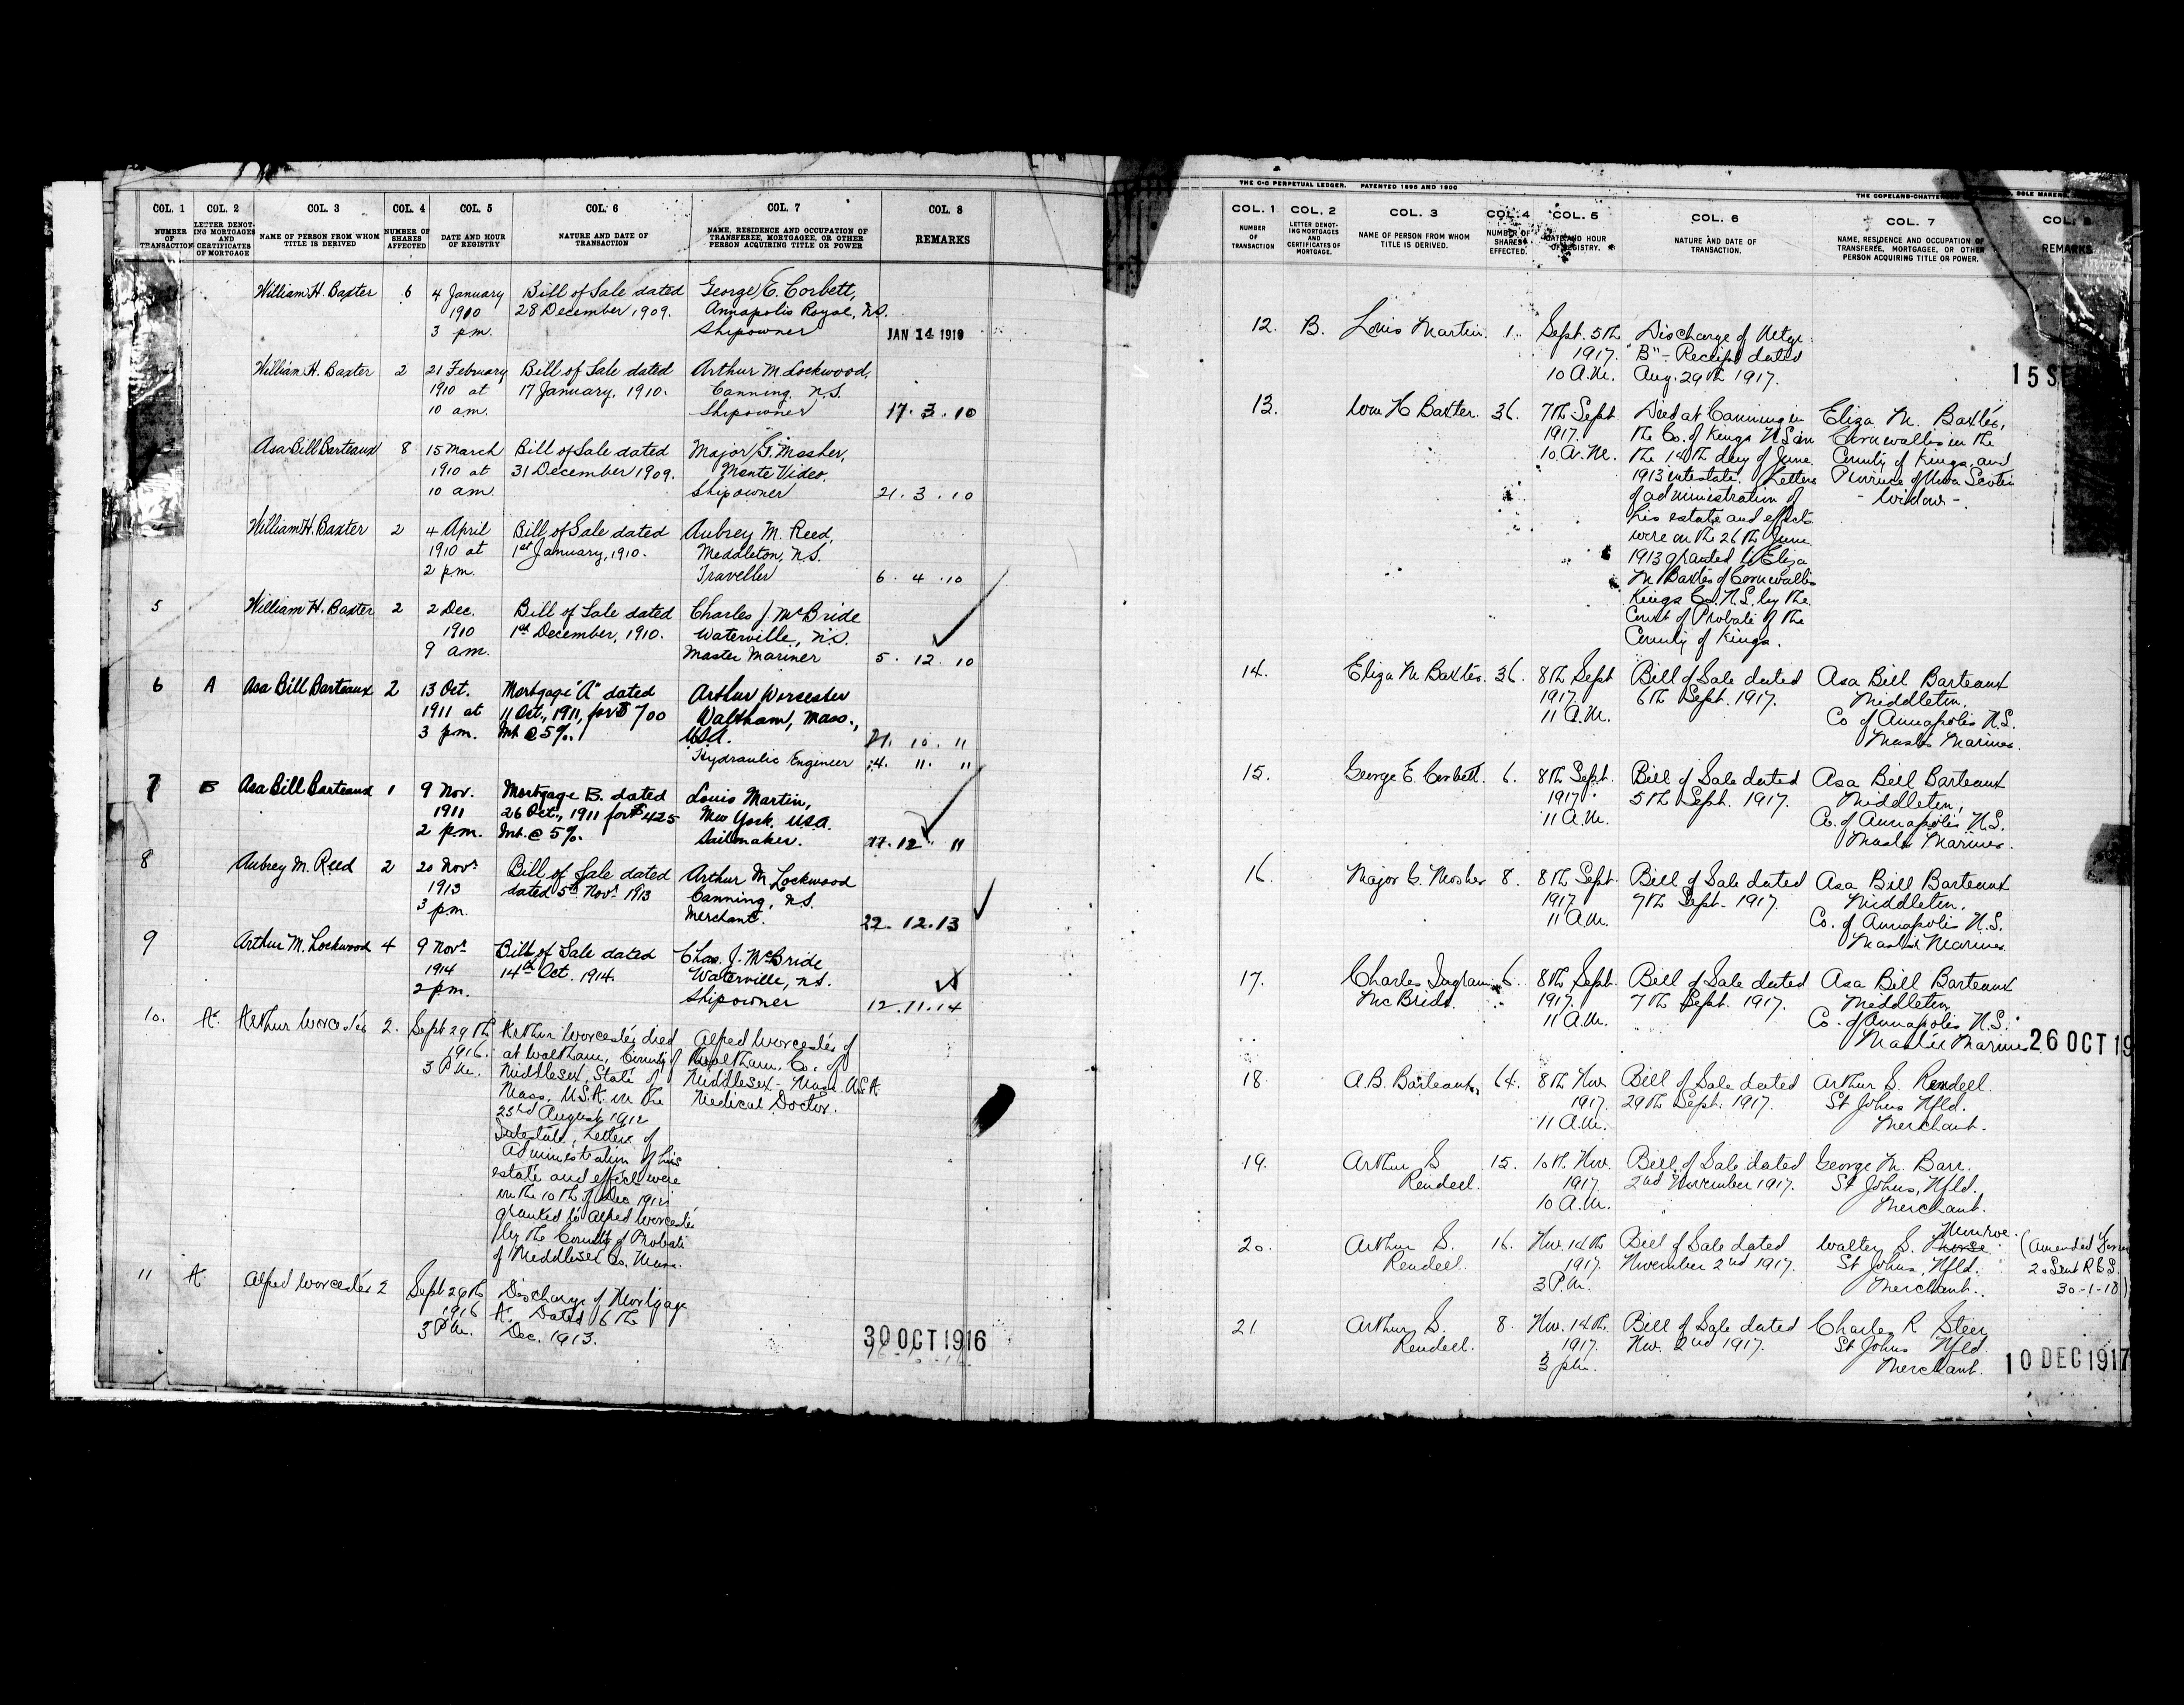 COL. 1 COL. 2 COL. 3 COL. 4 COL. 5 COL. 6 COL. 7 COL. 8
NUMBER OF TRANSACTION
LETTER DENOTING MORTGAGES AND CERTIFICATES OF MORTGAGE
NAME OF PERSON FROM WHOM TITLE IS DERIVED
NUMBER OF SHARES AFFECTED
DATE AND HOUR OF REGISTRY
NATURE AND DATE OF TRANSACTION
NAME, RESIDENCE AND OCCUPATION OF TRANSFEREE, MORTGAGEE, OR OTHER PERSON ACQUIRING TITLE OR POWER
REMARKS
William H. Baxter 6 4 January Bill of Sale dated George E. Corbett,
1910 28 December 1909. Annapolis Royal, N.S.
3 p.m. Shipowner JAN 14 1910
William H. Baxter 2 21 February Bill of Sale dated Arthur M. Lockwood,
1910 at 17 January, 1910. Canning, N.S.
10 a.m. Shipowner 17. 3. 10
Asa Bill Barteaux 8 15 March Bill of Sale dated Major G. Mosher,
1910 at 31 December 1909. Monte Video,
10 am. Shipowner 21. 3. 10
William H. Baxter 2 4 April Bill of Sale dated Aubrey M. Reed,
1910 at 1st January, 1910. Meddleton, N.S.
2 p.m. Traveller 6. 4. 10
5 William H. Baxter 2 2 Dec. Bill of Sale dated Charles J. McBride
1910 1st December, 1910. Waterville, N.S.
9 a.m. Master Mariner 5. 12. 10
6 A Asa Bill Barteaux 2 13 Oct. Mortgage "A" dated Arthur Worcester
1911 at 11 Oct., 1911, for $700 Waltham, Mass.,
3 p.m. Int. @ 5%. U.S.A. 21. 10. 11
Hydraulic Engineer 14. 11. 11
7 B Asa Bill Barteaux 1 9 Nov. Mortgage B. dated Louis Martin,
1911 26 Oct., 1911 for $425 New York, U.S.A.
2 p.m. Int. @ 5%. Sailmaker. 12. 11
8 Aubrey M. Reed 2 20 Novr Bill of Sale dated Arthur M. Lockwood
1913 dated 5th Novr 1913 Canning, N.S.
3 p.m. Merchant. 22. 12. 13
9 Arthur M. Lockwood 4 9 Novr Bill of Sale dated Chas. J. McBride
1914 14th Oct. 1914. Waterville, N.S.
2 p.m. Shipowner 12. 11. 14
10. A. Arthur Worcester 2. Sept 29th Arthur Worcester died Alfred Worcester of
1916. at Waltham, County of Waltham. Co. of
3 P.M. Middlesex, State of Middlesex - Mass. U.S.A.
Mass, U.S.A. on the Medical Doctor.
23rd August 1912
Intestate, Letters of
Administration of his
estate and effects were
on the 10th of Dec 1912
granted to Alfred Worcester
by the County of Probate
of Middlesex Co. Mass.
11 A. Alfred Worcester 2 Sept 29th Discharge of Mortgage
1916 A. Dated 6th
3 P.M. Dec. 1913. 30 OCT 1916
THE C-C PERPETUAL LEDGER. PATENTED 1896 AND 1900
SOLE MAKERS,
COL. 1 COL. 2 COL. 3 COL. 4 COL. 5 COL. 6 COL. 7 COL. 8
NUMBER OF TRANSACTION
LETTER DENOTING MORTGAGES AND CERTIFICATES OF MORTGAGE.
NAME OF PERSON FROM WHOM TITLE IS DERIVED.
NUMBER OF SHARES EFFECTED.
DATE AND HOUR OF REGISTRY.
NATURE AND DATE OF TRANSACTION.
NAME, RESIDENCE AND OCCUPATION OF TRANSFEREE, MORTGAGEE, OR OTHER PERSON ACQUIRING TITLE OR POWER.
REMARKS
12. B. Louis Martin. 1. Sept. 5th Discharge of Mtge.
1917. "B" - Receipt dated
10 A.M. Aug. 29th 1917. 15 SE
13. Wm H Baxter. 36. 7th Sept. Died at Canning in Eliza M. Baxter,
1917. the Co. of Kings N.S. on Cornwallis in the
10 A.M. the 14th day of June County of Kings and
1913 intestate. Letters Province of Nova Scotia
of administration of - Widow -.
his estate and effects
were on the 26th June
1913 granted to Eliza
M Baxter of Cornwallis
Kings Co. N.S. by the
Court of Probate of the
County of Kings.
14. Eliza M Baxter. 36. 8th Sept Bill of Sale dated Asa Bill Barteaux
1917. 6th Sept. 1917. Middleton,
11 A.M. Co of Annapolis N.S.
Master Mariner.
15. George E. Corbett. 6. 8th Sept. Bill of Sale dated Asa Bill Barteaux
1917. 5th Sept. 1917. Middleton,
11 A.M. Co. of Annapolis N.S.
Master Mariner.
16. Major G. Mosher 8. 8th Sept. Bill of Sale dated Asa Bill Barteaux
1917 7th Sept. 1917. Middleton,
11 A.M. Co. of Annapolis N.S.
Master Mariner
17. Charles Ingram 6. 8th Sept. Bill of Sale dated Asa Bill Barteaux
McBride. 1917. 7th Sept. 1917. Middleton,
11 A.M. Co. of Annapolis N.S.
Master Mariner 26 OCT 19
18 A.B. Barteaux, 64. 8th Nov. Bill of Sale dated Arthur S. Rendell.
1917. 29th Sept. 1917. St Johns Nfld.
11 A.M. Merchant.
19. Arthur S 15. 10th Nov. Bill of Sale dated George M. Barr.
Rendell. 1917 2nd November 1917. St Johns, Nfld.
10 A.M. Merchant.
Munroe.
20. Arthur S. 16. Nov. 14th Bill of Sale dated Walter S. Morse (Amended
Rendell. 1917. November 2nd 1917. St Johns, Nfld. 20 Sent R.G.S.
3 P.M. Merchant. 30-1-18)
21 Arthur S. 8. Nov. 14th. Bill of Sale dated Charles R Steer
Rendell. 1917. Nov. 2nd 1917. St Johns Nfld.
3 p.m. Merchant. 10 DEC 1917